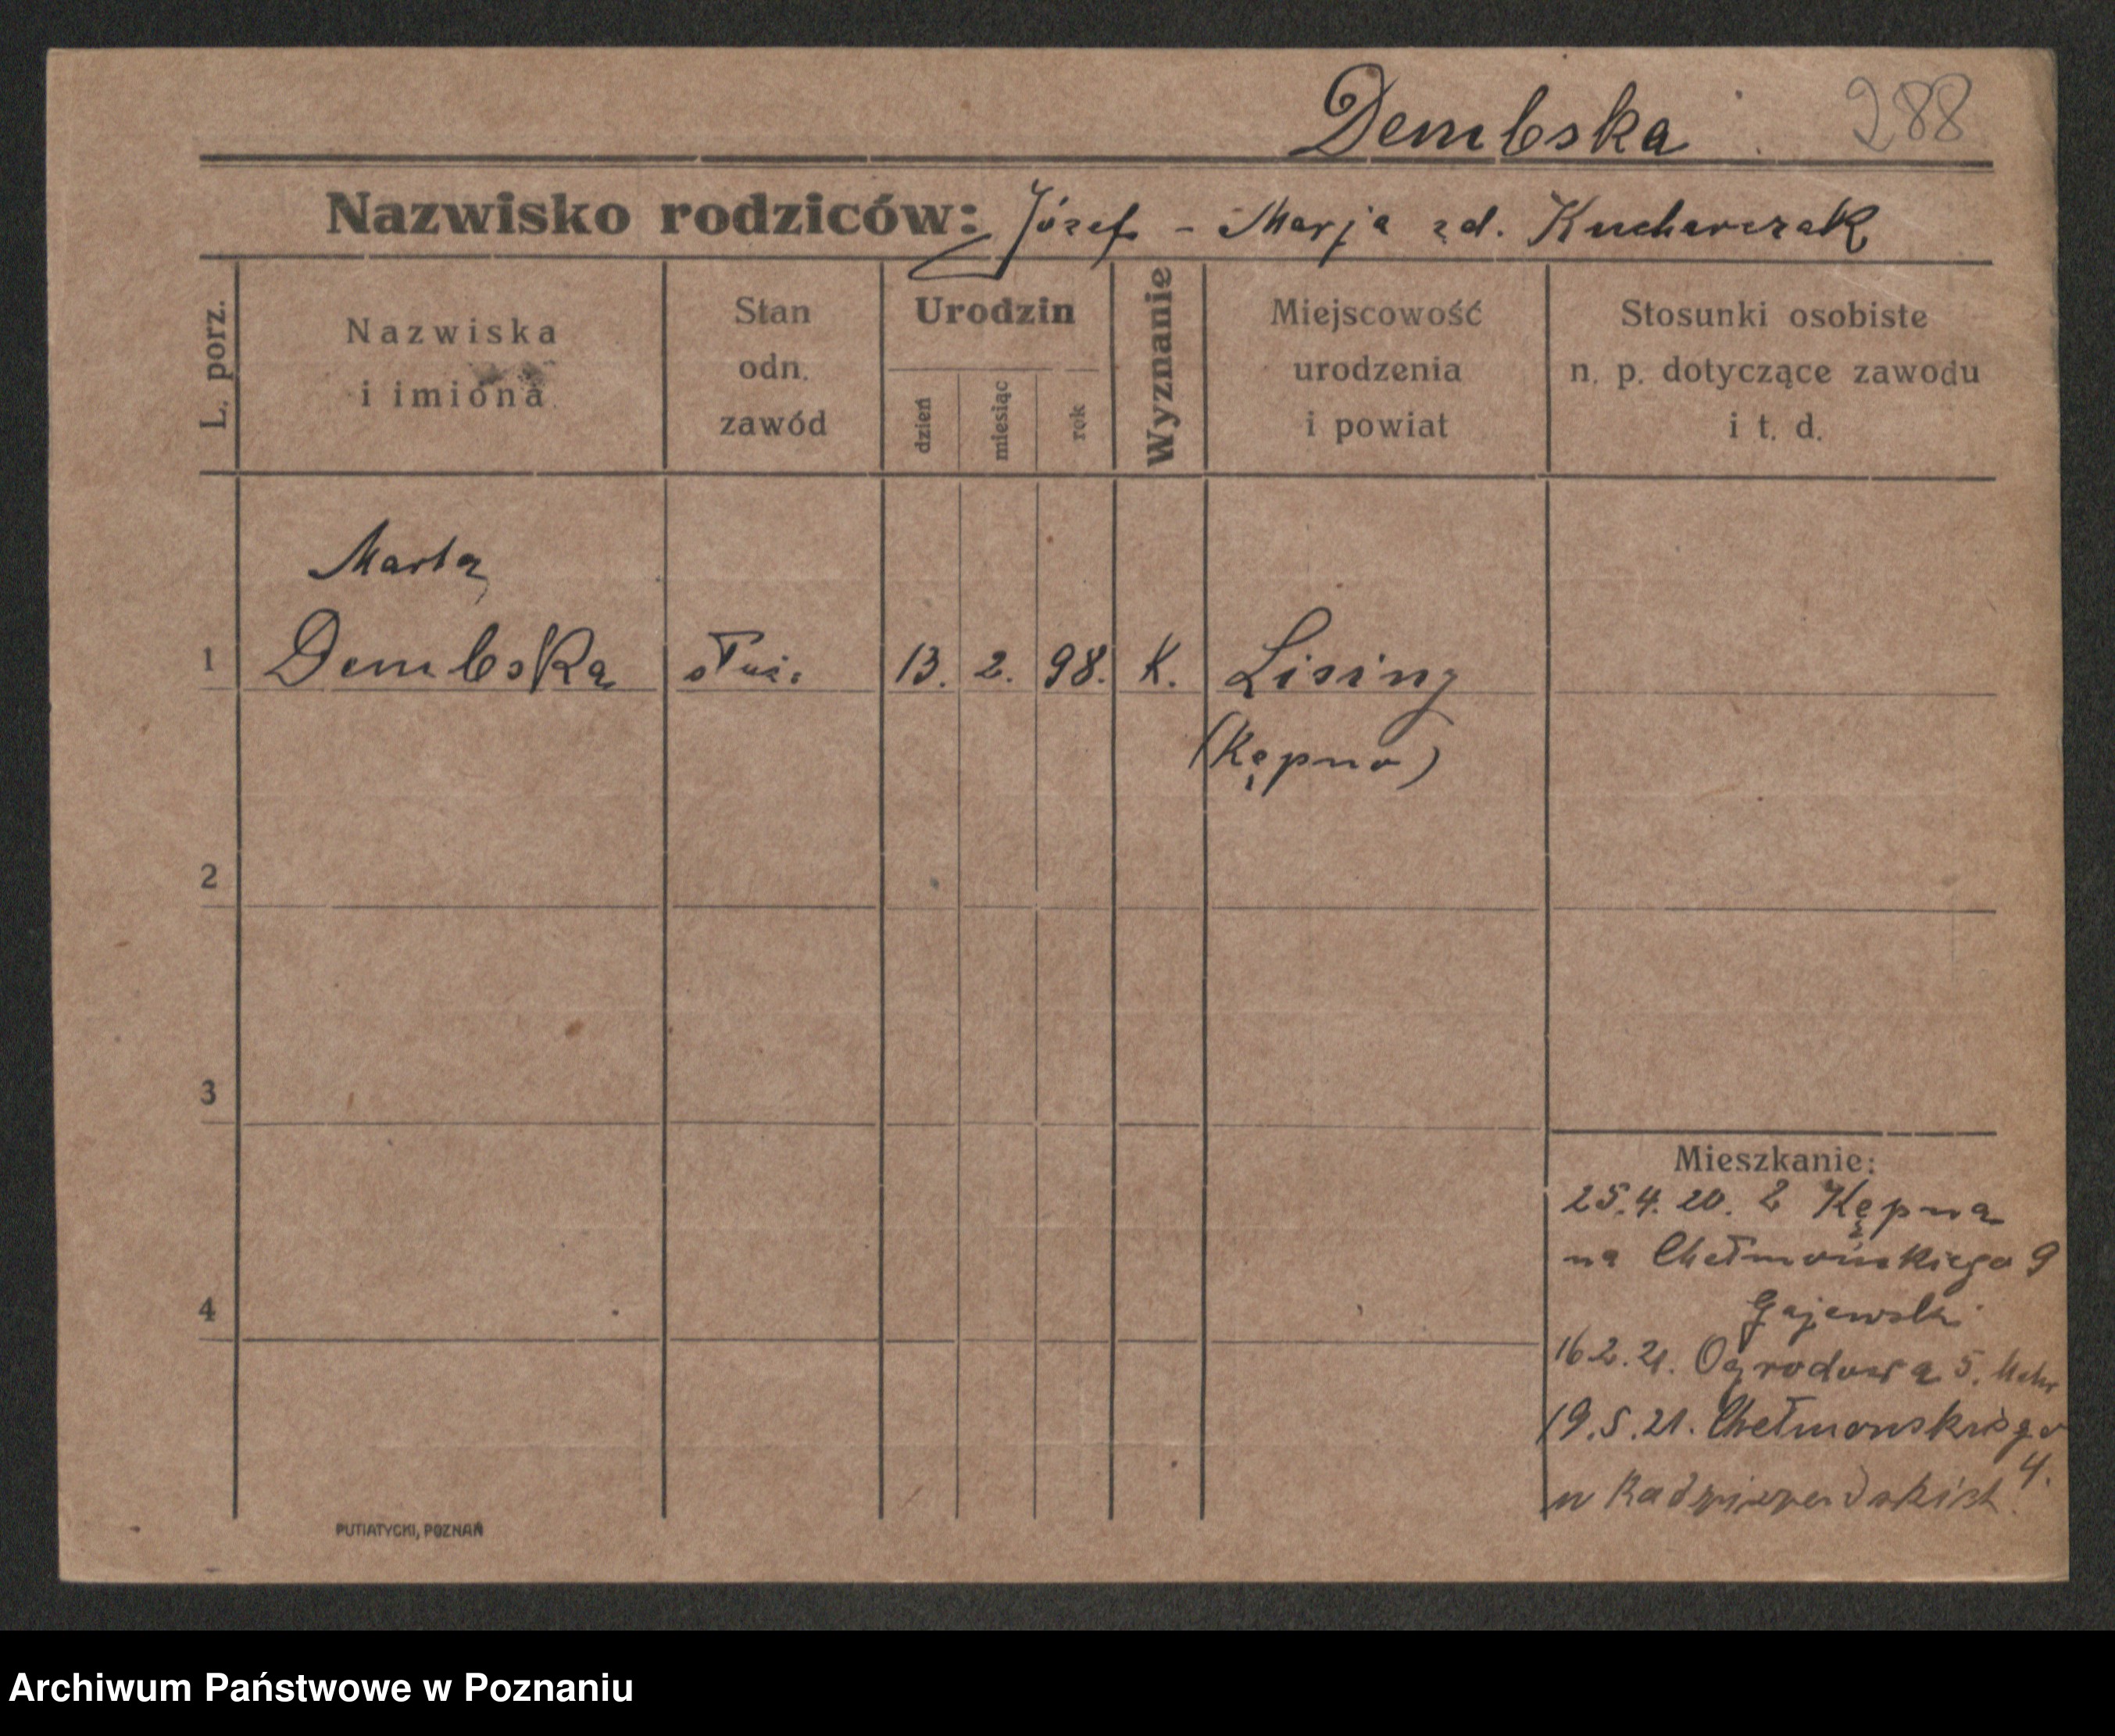 Dembska 288
Nazwisko rodziców: Józef - Marja zd. Kucharczak
L. porz.
Nazwiska
i imiona
Stan
odn.
zawód
Urodzin
dzień
miesiąc
rok
Wyznanie
Miejscowość
urodzenia
i powiat
Stosunki osobiste
n. p. dotyczące zawodu
i t. d.
Marta
1 Dembska służ. 13. 2. 98. K. Lisiny
(Kępno)
2
3
4
Mieszkanie:
25.4.20. z Kępna
na Chełmońskiego 9
Gajewski
16.2.21. Ogrodowa 5.
19.5.21. Chełmonskiego
4.
PUTIATYCKI, POZNAŃ
Archiwum Państwowe w Poznaniu